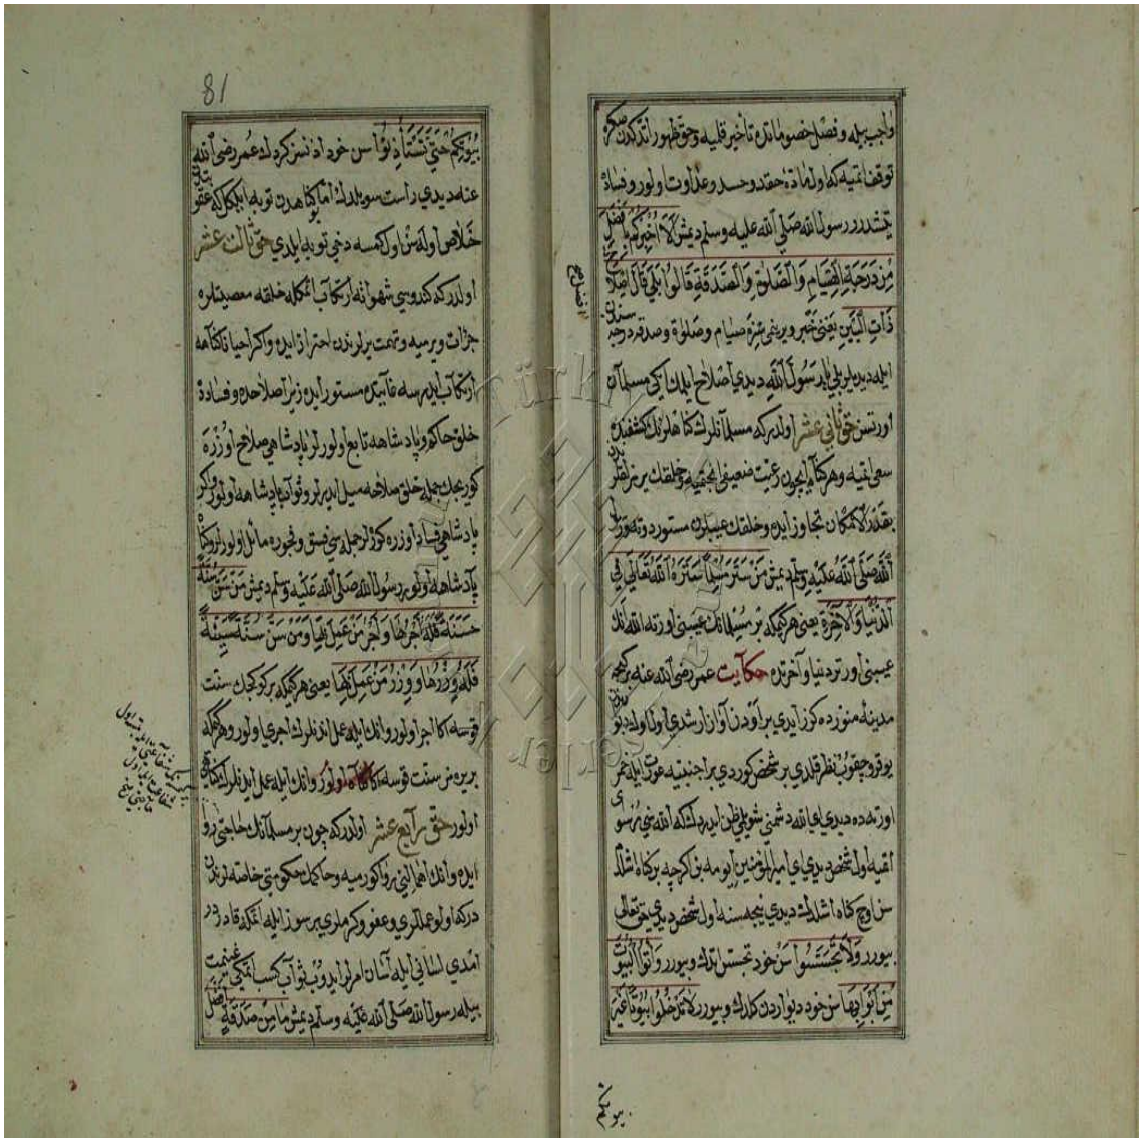 واجب بيله و فصل خصوماتده تأخير قلميه و حق ظهور ائتدكدن صكره
توقف ائتميه كه اول ماده حقد و حسد و عداوت اولور و فساده
يتشدرر رسول الله صلى الله عليه وسلم ديمش الا اخبركم بافضل
من درجة الصيام والصلوة والصدقة قالوا بلى قال اصلاح
ذات البين يعنى خبر ويريمى سزه صيام وصلوة وصدقه درجه سندن
ايله ديديلر بلى يا رسول الله ديدي اصلاح ايلمك ايكى مسلمان
اورتسن حق ثانى عشر اولدركه مسلمانلرك كناهلرنك كشفنده
سعى ائتميه و هر كناه ايچون رعيت ضعيفى انجتميه و خلقك يرمزلقلرندن
بقدر الامكان تجاوز ايده و خلقك عيبلرن مستور دوته رسول
الله صلى الله عليه وسلم ديمش من ستر مسلما ستره الله تعالى فى
الدنيا والآخرة يعنى هر كيمكه بر مسلمانك عيبنى اورته الله انك
عيبنى اورتر دنيا و آخرتده حكايت عمر رضى الله عنه بر كيجه
مدينه منوره ده كزر ايدي بر اودن آواز ارشدي اول اوك ديوارندن
يوقرو چقوب نظر قلدي بر شخص كوردي بر اجنبيه عورت ايله خمر
اورته ده ديدي اي الله دشمنى شويله ظن ايدردك كه الله سنى رسواي
اتميه اول شخص ديدي اي امير المؤمنين ايومه بن كرچه بر كناه اشلدم
سن اوچ كناه اشلدك ديدي نيجه سنه اول شخص ديدي حق تعالى
بيورر ولا تجسسوا سن خود تجسس ايتدك و بيورر وأتوا البيوت
من ابوابها سن خود ديواردن كلدك و بيورر لا تدخلوا بيوتا غير
بيوتكم
افضل صح
81
بيوتكم حتى تستأذنوا سن خود اذنسز كردك عمر رضى الله
عنه ديدي راست سويلدك اما بو كناهدن توبه ايلمكل كه عقوبتدن
خلاص اوله سن اول كمسه دخى توبه ايلدي حق ثالث عشر
اولدركه كندوسي شهواته ارتكاب ائتمكله خلقه معصيتلره
جرأت ويرميه و تهمت يرلرندن احتراز ايده و اكر احيانا كناهه
ارتكاب ايدرسه غايتده مستور ايده زيرا صلاحده و فسادده
خلق حاكم و پادشاهه تابع اولورلر پادشاهى صلاح اوزره
كوريجك جمله خلق صلاحه ميل ايدرلر و ثواب پادشاهه اولور و اكر
پادشاهى فساد اوزره كورلر جمله سي فسق و فجوره مائل اولورلر و كناه
پادشاهه اولور رسول الله صلى الله عليه وسلم ديمش من سن سنة
حسنة فله اجرها و اجر من عمل بها و من سن سنة سيئة
فله وزرها و وزر من عمل بها يعنى هر كيمكه بر كوكجك سنت
قوسه اكا اجر اولور و انك ايله عمل ايدنلرك اجري اولور و هر كيمكه
بر يرمز سنت قوسه اكا كناه اولور و انك ايله عمل ايدنلرك كناهى
اولور حق رابع عشر اولدركه چون بر مسلمانك حاجتى روا
ايده و انك اهمالنى روا كورميه و حاكمك حكومتى خاصه لرندن
دركه اولو عملاري و عفو و كرملري بر سوز ايله ائتمكه قادردر
امدي لسانى ايله آسان امرلر ايدوب ثواب كسب ائتمكى غنيمت
بيله رسول الله صلى الله عليه وسلم ديمش ما من صدقة افضل